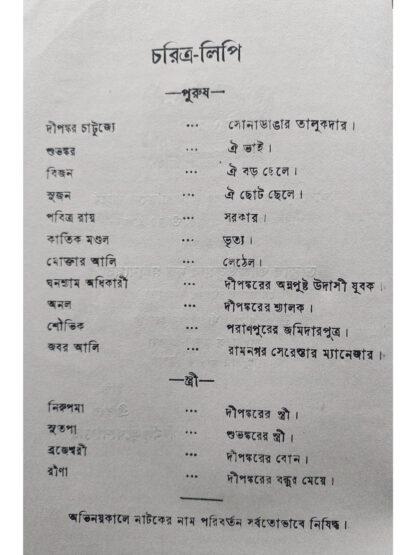 চরিত্র-লিপি
—পুরুষ—
দীপঙ্কর চাটুজ্যে ... সোনাডাঙার তালুকদার।
শুভঙ্কর ... ঐ ভাই।
বিজন ... ঐ বড় ছেলে।
সুজন ... ঐ ছোট ছেলে।
পবিত্র রায় ... সরকার।
কার্তিক মণ্ডল ... ভৃত্য।
মোক্তার আলি ... লেঠেল।
ঘনশ্যাম অধিকারী ... দীপঙ্করের অন্নপুষ্ট উদাসী যুবক।
অনল ... দীপঙ্করের শ্যালক।
শৌভিক ... পরাণপুরের জমিদারপুত্র।
জবর আলি ... রামনগর সেরেস্তার ম্যানেজার।
—স্ত্রী—
নিরুপমা ... দীপঙ্করের স্ত্রী।
সুতপা ... শুভঙ্করের স্ত্রী।
ব্রজেশ্বরী ... দীপঙ্করের বোন।
রীণা ... দীপঙ্করের বন্ধুর মেয়ে।
অভিনয়কালে নাটকের নাম পরিবর্তন সর্বতোভাবে নিষিদ্ধ।